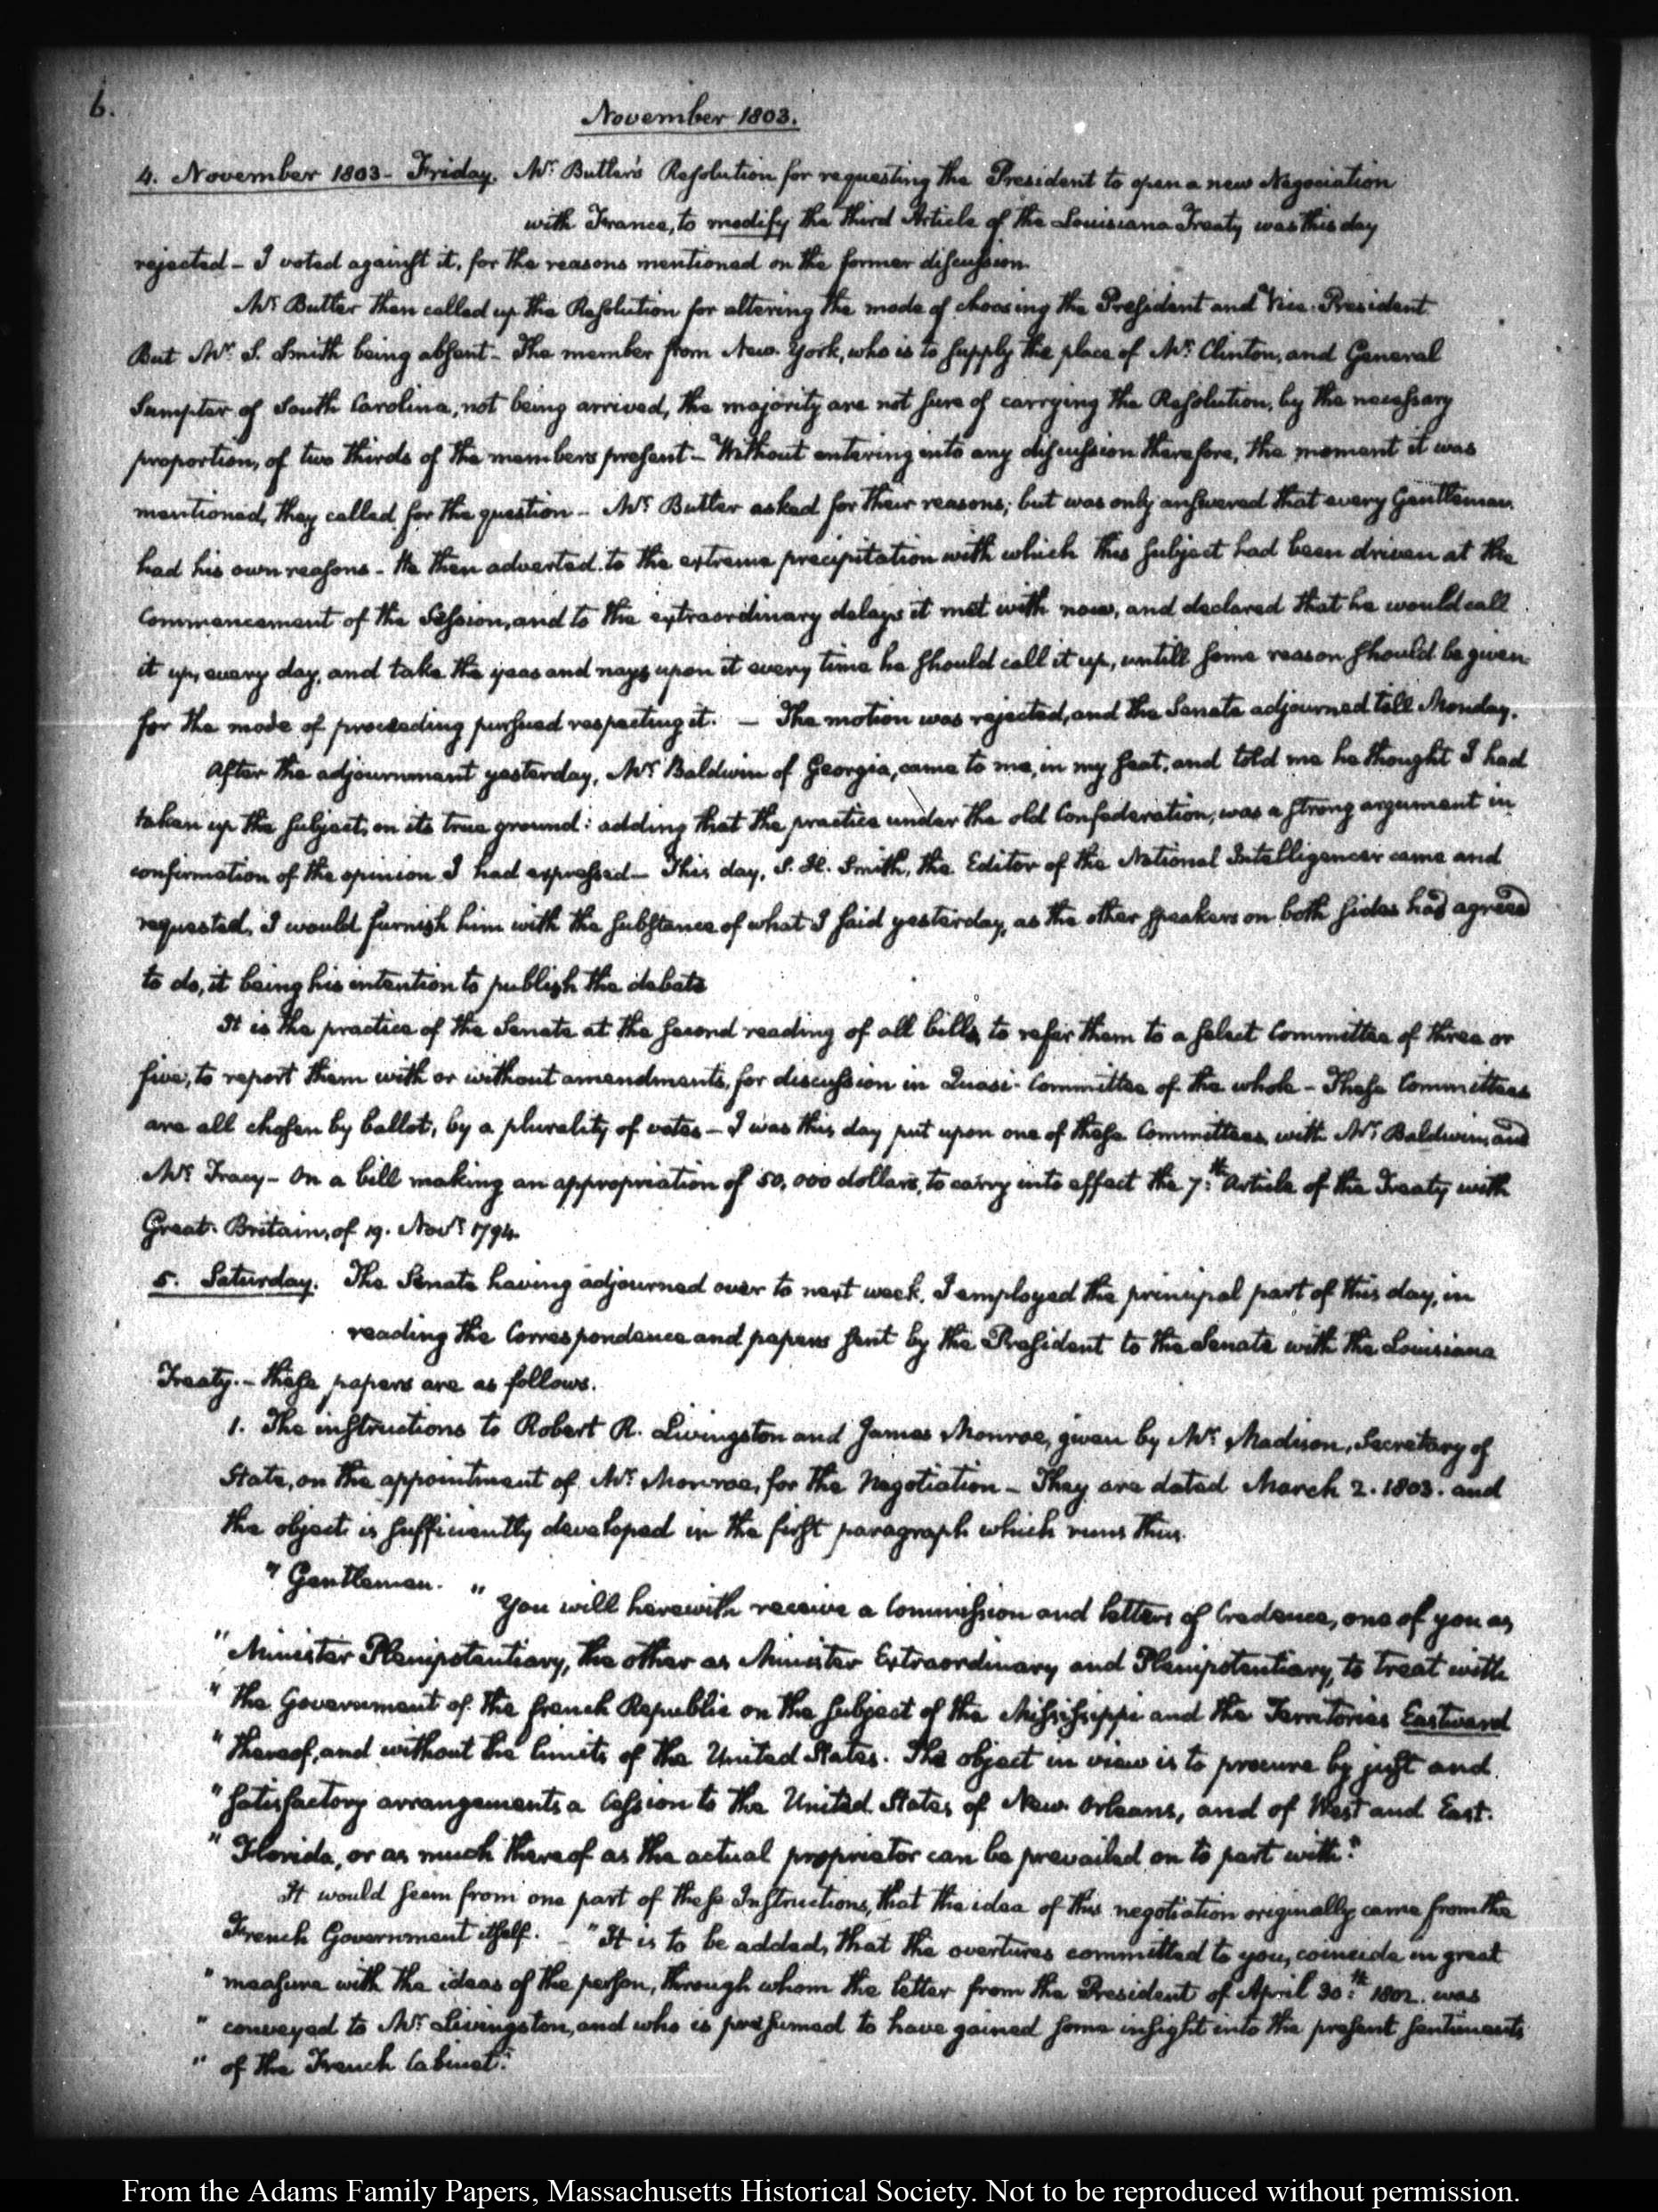 6.
November 1803.
4. November 1803 - Friday. Mr. Butler's Resolution for requesting the President to open a new Negociation
with France, to modify the third Article of the Louisiana Treaty was this day
rejected - I voted against it, for the reasons mentioned on the former discussion.
Mr. Butler then called up the Resolution for altering the mode of choosing the President and Vice-President
But Mr. S. Smith being absent - The member from New-York, who is to supply the place of Mr. Clinton, and General
Sumpter of South Carolina, not being arrived, the majority are not sure of carrying the Resolution, by the necessary
proportion, of two thirds of the members present - Without entering into any discussion therefore, the moment it was
mentioned, they called for the question - Mr. Butler asked for their reasons; but was only answered that every Gentleman
had his own reasons - He then adverted to the extreme precipitation with which this subject had been driven at the
commencement of the Session, and to the extraordinary delays it met with now, and declared that he would call
it up, every day, and take the yeas and nays upon it every time he should call it up, untill some reason should be given
for the mode of proceeding pursued respecting it. - The motion was rejected, and the Senate adjourned till Monday.
After the adjournment yesterday, Mr. Baldwin of Georgia, came to me, in my seat, and told me he thought I had
taken up the subject, on its true ground: adding that the practice under the old Confederation, was a strong argument in
confirmation of the opinion I had expressed - This day, S. H. Smith, the Editor of the National Intelligencer came and
requested, I would furnish him with the substance of what I said yesterday, as the other speakers on both sides had agreed
to do, it being his intention to publish the debate
It is the practice of the Senate at the second reading of all bills, to refer them to a select Committee of three or
five, to report them with or without amendments, for discussion in Quasi-Committee of the whole - These Committees
are all chosen by ballot, by a plurality of votes - I was this day put upon one of these Committees, with Mr. Baldwin, and
Mr. Tracy - On a bill making an appropriation of 50,000 dollars, to carry into effect the 7.th Article of the Treaty with
Great-Britain, of 19. Novr. 1794.
5. Saturday. The Senate having adjourned over to next week, I employed the principal part of this day, in
reading the Correspondence and papers sent by the President to the Senate with the Louisiana
Treaty. - these papers are as follows.
1. The instructions to Robert R. Livingston and James Monroe, given by Mr. Madison, Secretary of
State, on the appointment of Mr. Monroe, for the Negotiation - They are dated March 2. 1803. and
the object is sufficiently developed in the first paragraph which runs thus.
" Gentlemen. "
You will herewith receive a Commission and letters of Credence, one of you as,
" Minister Plenipotentiary, the other as Minister Extraordinary and Plenipotentiary, to treat with
" the Government of the french Republic on the subject of the Missisippi and the Territories Eastward
" thereof, and without the limits of the United States. The object in view is to procure by just and
" satisfactory arrangements a Cession to the United States of New-Orleans, and of West and East-
" Florida, or as much thereof as the actual proprietor can be prevailed on to part with."
It would seem from one part of these Instructions, that the idea of this negotiation originally came from the
French Government itself. - "It is to be added, that the overtures committed to you, coincide in great
" measure with the ideas of the person, through whom the letter from the President of April 30.th 1802. was
" conveyed to Mr. Livingston, and who is presumed to have gained some insight into the present sentiments
" of the French Cabinet."
From the Adams Family Papers, Massachusetts Historical Society. Not to be reproduced without permission.